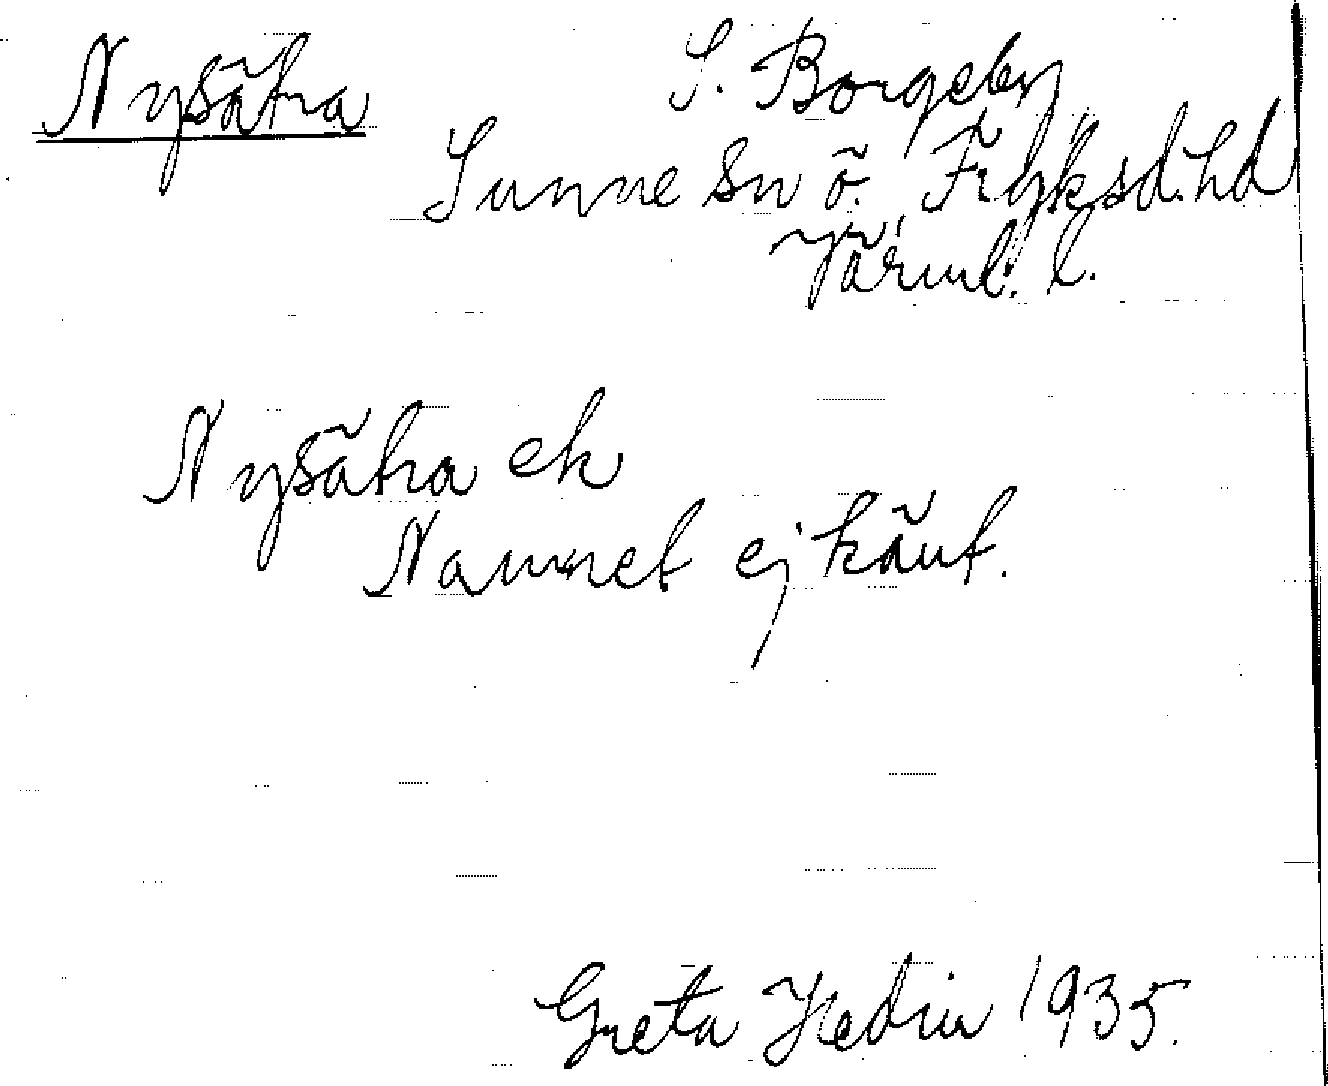 Nysätra S. Borgeby
Sunne sn Ö. Fryksd. hd
Värml. l.
Nysätra ek
Namnet ej känt.
Greta Hedin 1935.